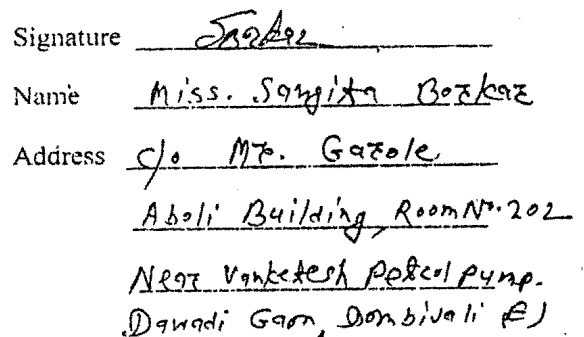 Signature
Name Miss. Sangita Borkar
Address C/o Mr. Garole
Aboli Building, Room No. 202
Near Vanketesh Petrol pump.
Dawadi Gaon, Dombivali (E)